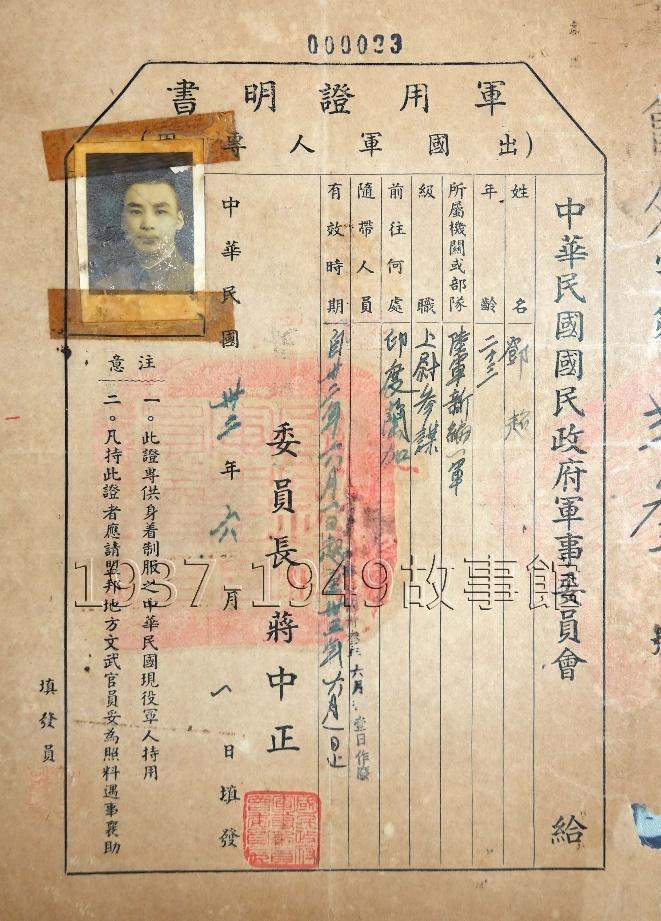 000023
軍用證明書
(出國軍人專用)
中華民國國民政府軍事委員會 給
姓名 鄧超
年齡 二十三
所屬機關或部隊 陸軍新編一軍
級職 上尉參謀
前往何處 印度蘭加
隨帶人員
有效時期 自卅二年六月一日起至卅三年六月一日止
委員長 蔣中正
中華民國卅二年六月一日填發
注意
一。此證專供身着制服之中華民國現役軍人持用
二。凡持此證者應請盟邦地方文武官員妥為照料遇事襄助
填發員
1937-1949故事館